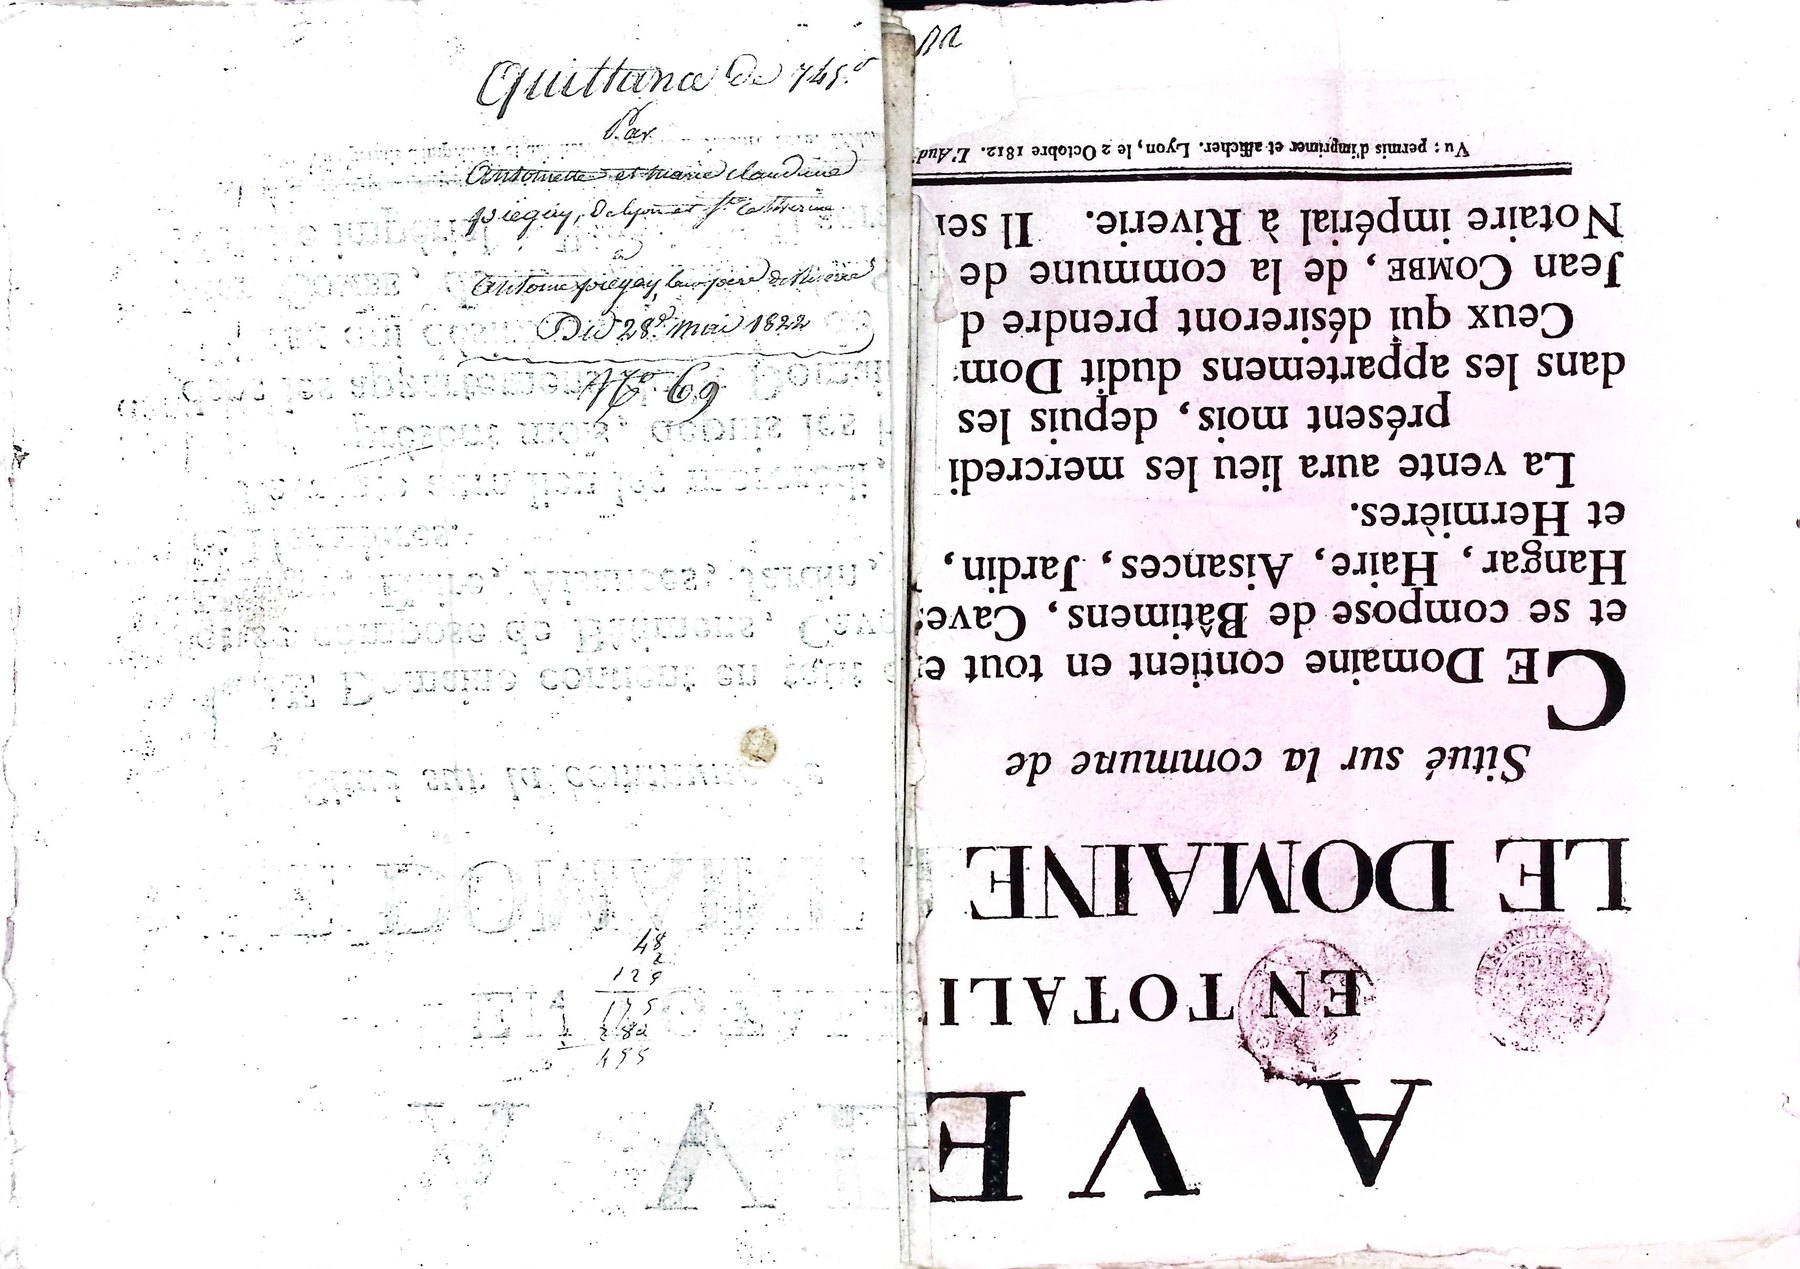 Quittance de 745.
Par
Antoinette et marie claudine
piegay, de lyon et Ste Catherine
a
Antoine piegay, leur pere de Riverie
Du 28. mai 1822
No 69
48
2
129
175
495
A VE
EN TOTALI
LE DOMAINE
Situé sur la commune de
CE Domaine contient en tout e
et se compose de Bâtimens, Cave
Hangar, Haire, Aisances, Jardin,
et Hermières.
La vente aura lieu les mercredi
présent mois, depuis les
dans les appartemens dudit Dom
Ceux qui désireront prendre d
Jean COMBE, de la commune de
Notaire impérial à Riverie. Il ser
Vu : permis d'imprimer et afficher. Lyon, le 2 Octobre 1812. L'Aud